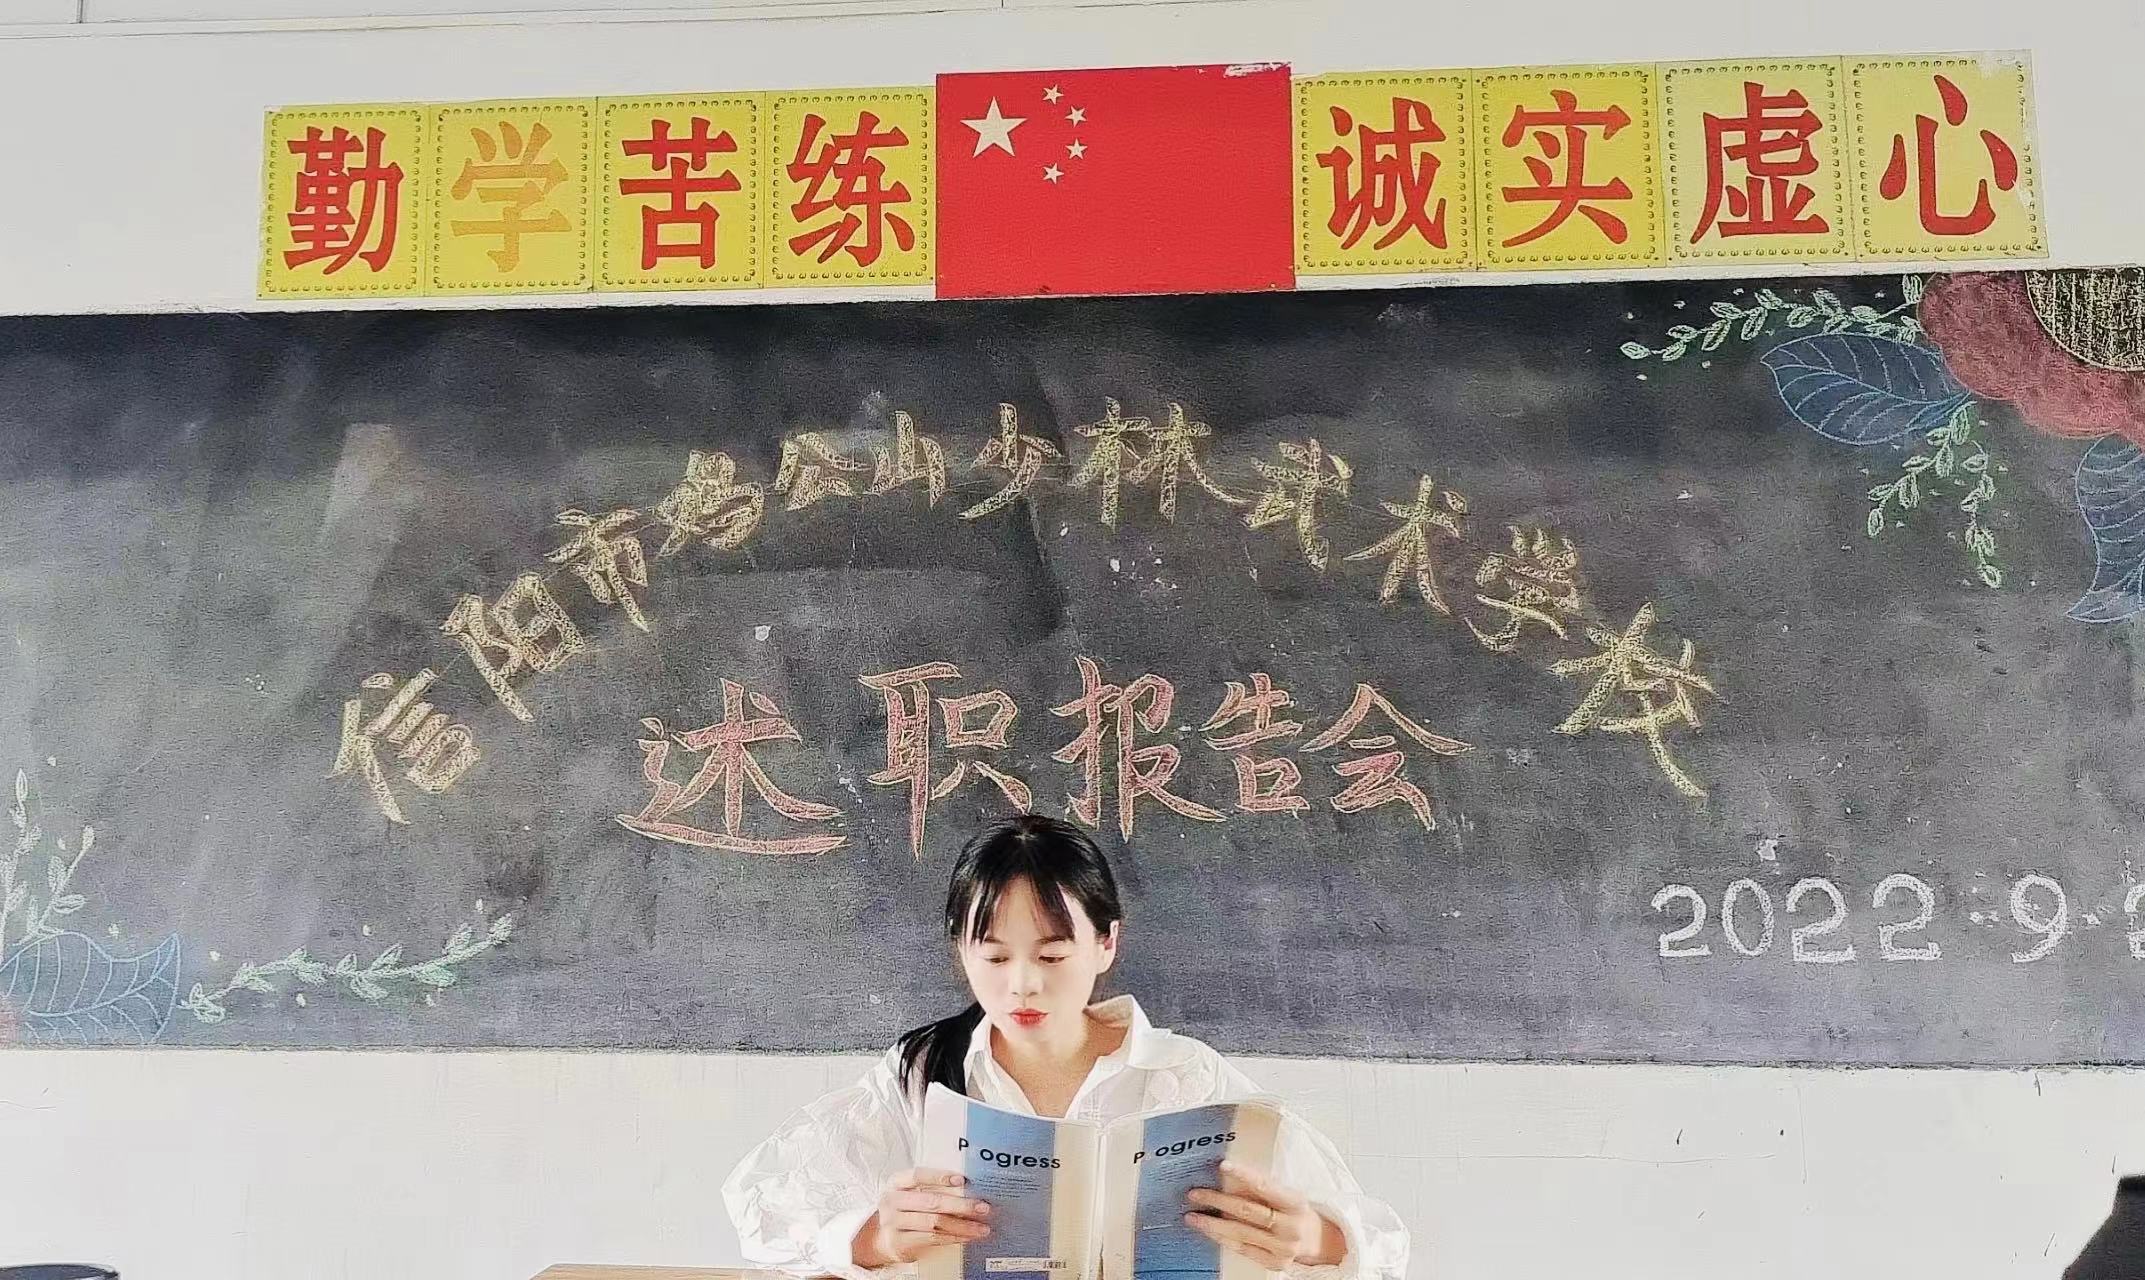 勤学苦练 诚实虚心
信阳市鸡公山少林武术学校
述职报告会
2022.9.2
Progress Progress